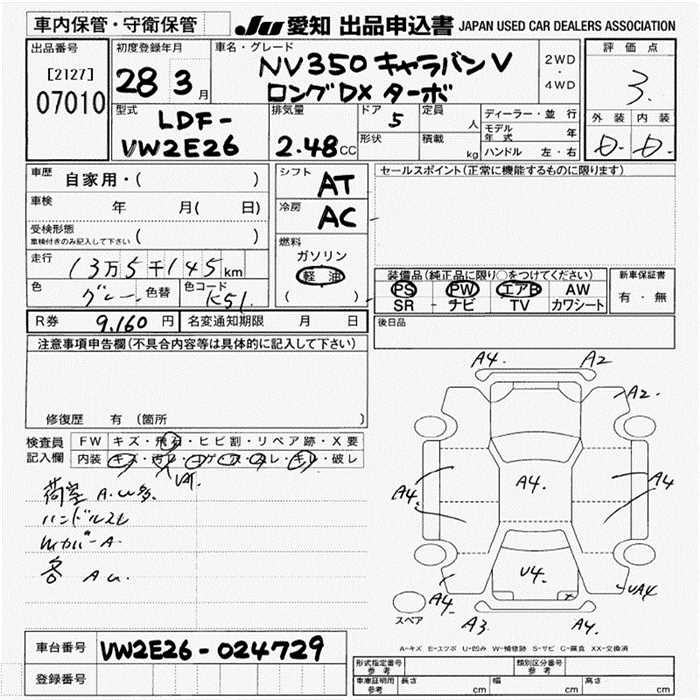 車内保管・守衛保管
JU 愛知 出品申込書 JAPAN USED CAR DEALERS ASSOCIATION
出品番号
[2127]
07010
初度登録年月
28 3月
車名・グレード
NV350 キャラバン V
ロングDX ターボ
2WD
・
4WD
評価点
3.
外装 内装
D. D.
型式
LDF-
VW2E26
排気量
2.48CC
ドア
5
定員
人
形状
積載
kg
ディーラー・並行
モデル年式 年
ハンドル 左・右
車歴
自家用・( )
車検
年 月( 日)
受検形態
車検付きのみ記入して下さい ( )
走行
13万5千145km
色
グレー
色替
色コード
K51.
シフト
AT
冷房
AC
燃料
ガソリン
軽油
( )
セールスポイント(正常に機能するものに限ります)
装備品(純正品に限り○をつけてください)
PS PW エアB AW
SR ナビ TV カワシート
新車保証書
有・無
後日品
R券 9,160 円
名変通知期限 月 日
注意事項申告欄(不具合内容等は具体的に記入して下さい)
修復歴 有 (箇所 )
検査員
記入欄
FW キズ・飛石・ヒビ割・リペア跡・X要
内装 キズ・・コゲ・・・キレ・破レ
荷室 A.U多.
ハンドルスレ
カバーA.
各 A U.
A4. A2
A2.
A4.
A4.
A4.
U4.
A4.
UA4
A3
A4.
スペア
A-キズ E-エクボ U-凹み W-補修跡 S-サビ C-腐食 XX-交換済
車台番号
VW2E26-024729
登録番号
形式指定番号
参考
類別区分番号
参考
車庫証明用
参考
長さ cm
幅 cm
高さ cm